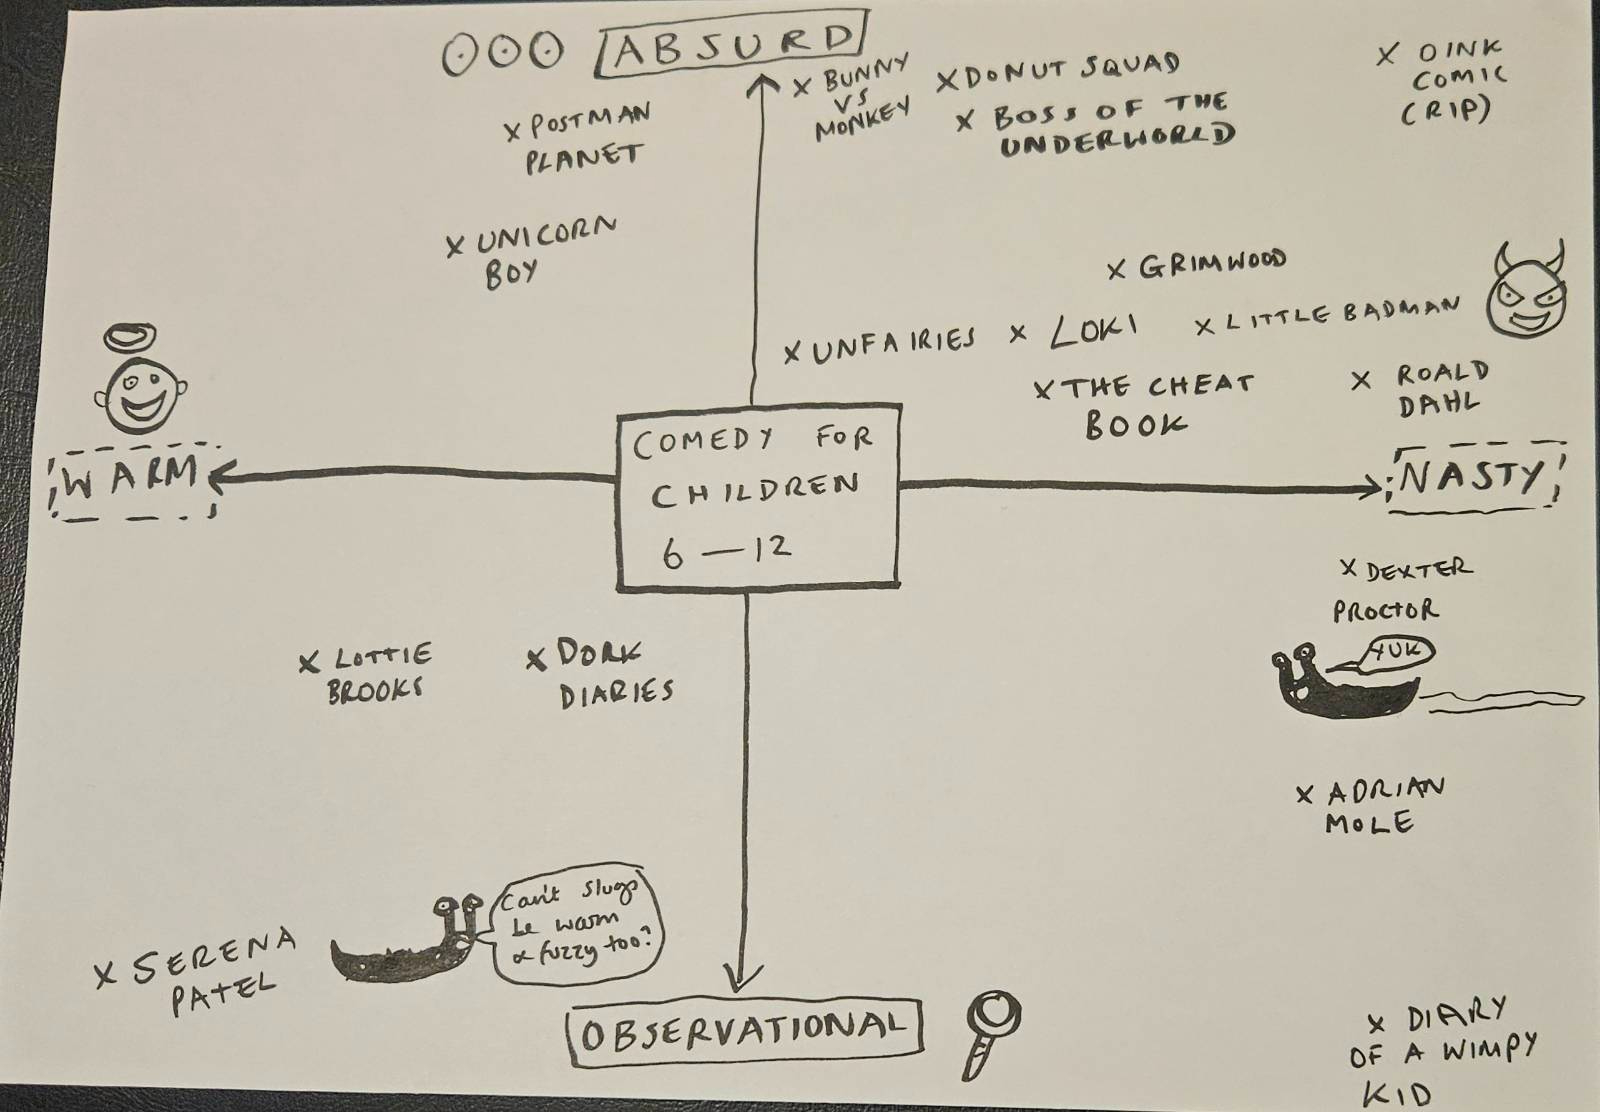 ABSURD
X BUNNY
VS
MONKEY
X DONUT SQUAD
X BOSS OF THE
UNDERWORLD
X OINK
COMIC
(RIP)
X POSTMAN
PLANET
X UNICORN
BOY
X GRIMWOOD
X UNFAIRIES
X LOKI
X LITTLE BADMAN
X THE CHEAT
BOOK
X ROALD
DAHL
WARM
COMEDY FOR
CHILDREN
6 — 12
NASTY
X DEXTER
PROCTOR
YUK
X LOTTIE
BROOKS
X DORK
DIARIES
X ADRIAN
MOLE
Can't slugs
be warm
& fuzzy too?
X SERENA
PATEL
OBSERVATIONAL
X DIARY
OF A WIMPY
KID